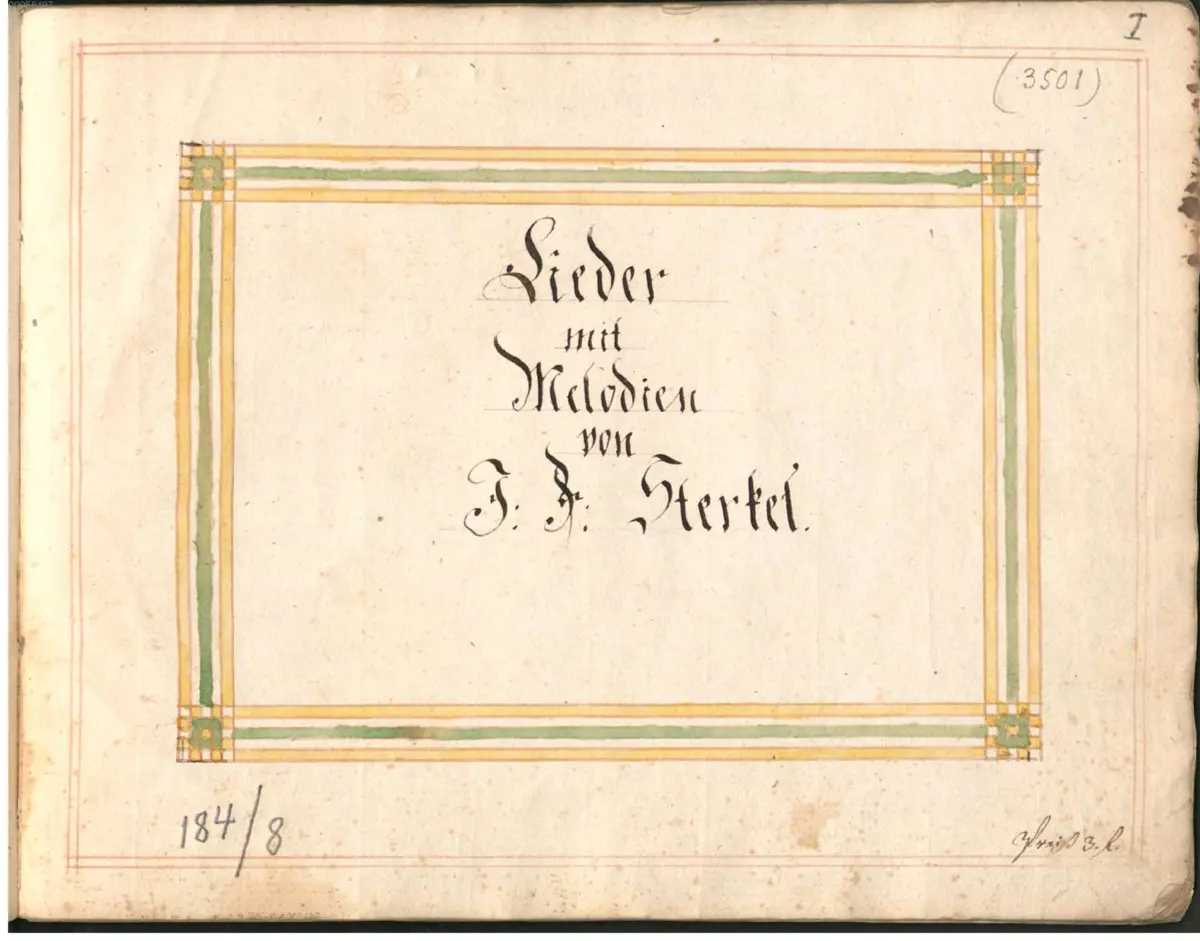 I
(3501)
Lieder
mit
Melodien
von
J: F: Sterkel.
184/8
Preiß 3. f.